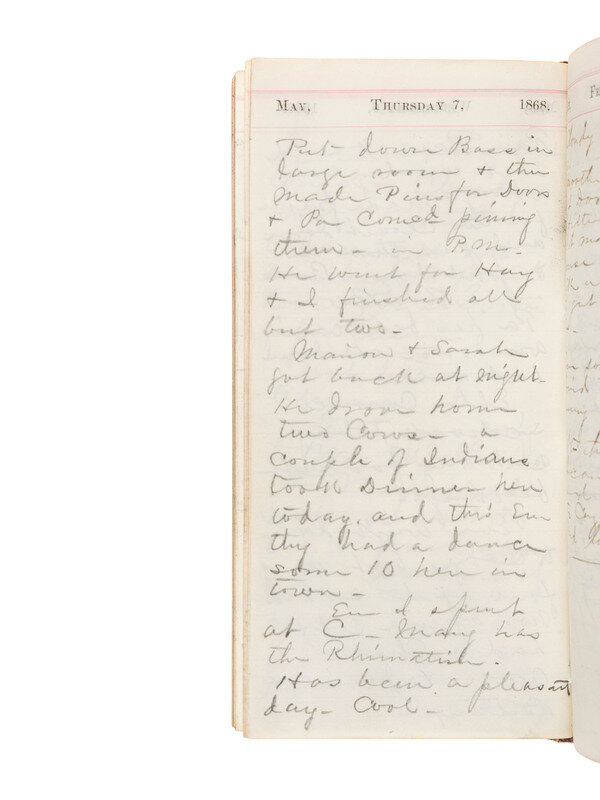 May, Thursday 7, 1868.
Put down Base in
large room & then
made Pins for Doors
& Pa Comed pining
them - in P.M.
He went for Hay
& I finished all
but two -
Marion & Sarah
got back at night.
He drove home
two Cows - a
couple of Indians
took Dinner here
today, and this Eve
they had a dance
some 10 here in
town -
Eve I spent
at C - has
the Rhumatism.
Has been a pleasant
day - Cool -